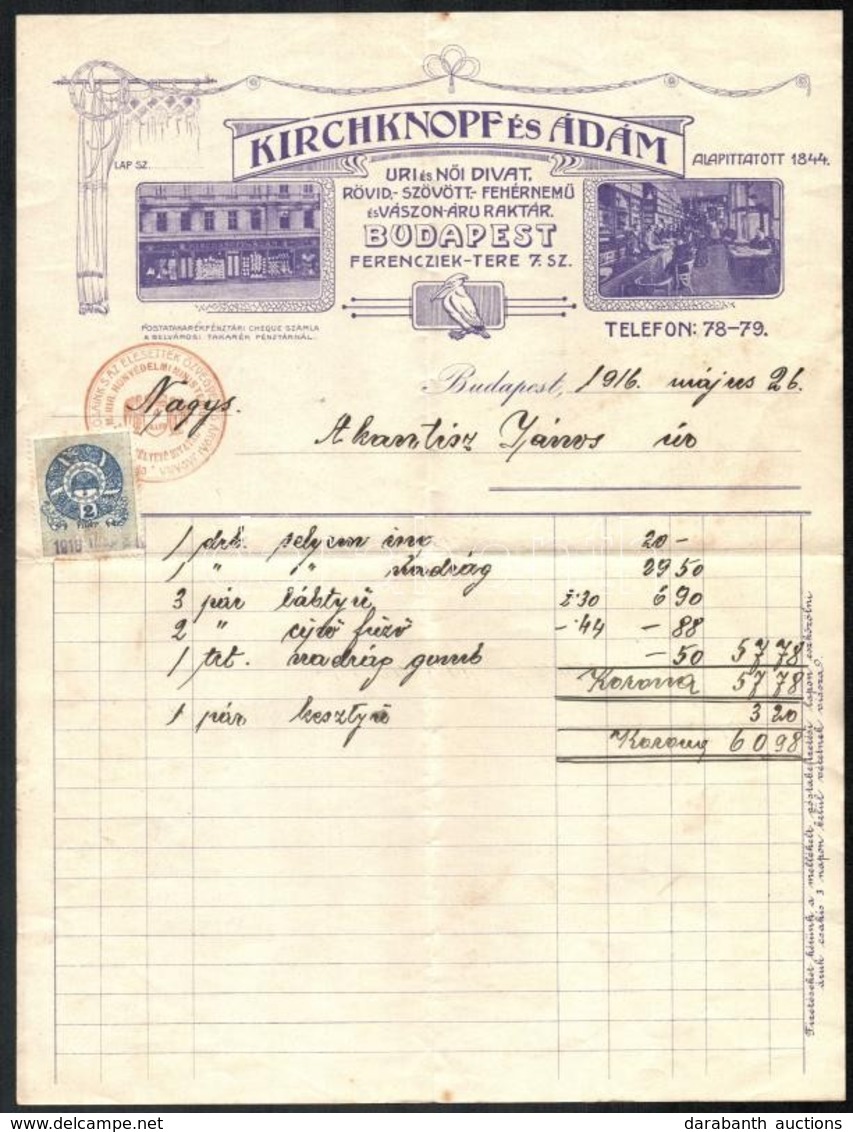 KIRCHKNOPF ÉS ÁDÁM
LAP SZ.
ALAPITTATOTT 1844.
URI ÉS NŐI DIVAT,
RÖVID,- SZÖVÖTT,- FEHÉRNEMŰ
ÉS VÁSZON-ÁRU RAKTÁR.
BUDAPEST
FERENCZIEK-TERE 7. SZ.
POSTATAKARÉKPÉNZTÁRI CHEQUE SZÁMLA
A BELVÁROSI TAKARÉK PÉNZTÁRNÁL.
TELEFON: 78-79.
Budapest, 1916. május 26.
Nagys.
János úr
2
1 drb. selyem ing 20 -
1 " " nadrág 29 50
3 pár lábtyű 2·30 6 90
2 " cipő fűző -·44 - 88
1 nadrág gomb - 50 57 78
Korona 57 78
1 pár kesztyű 3 20
Korona 60 98
Fizetéseket kérünk a mellékelt postabefizetési lapon eszközölni
áruk csakis 3 napon belül vétetnek vissza.
darabanth auctions